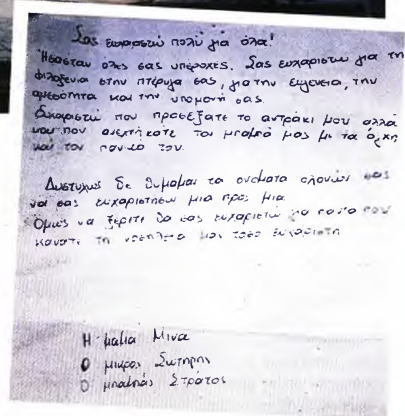 Σας ευχαριστώ πολύ για όλα!
Ήσασταν όλες σας υπέροχες. Σας ευχαριστώ για τη
φιλοξενία στην πτέρυγα σας, για την ευγένεια, την
αμεσότητα και την υπομονή σας.
Ευχαριστώ που προσέξατε το αντράκι μου αλλά
και που ανεχτήκατε τον μπαμπά μας με τα άγχη
και τον πανικό του.
Δυστυχώς δε θυμάμαι τα ονόματα ολονών σας
να σας ευχαριστήσω μια προς μια.
Όμως να ξέρετε θα σας ευχαριστώ για πάντα που
κάνατε τη νοσηλεία μου τόσο ευχάριστη
Η μαμά Μίνα
Ο μικρός Σωτήρης
Ο μπαμπάς Στράτος